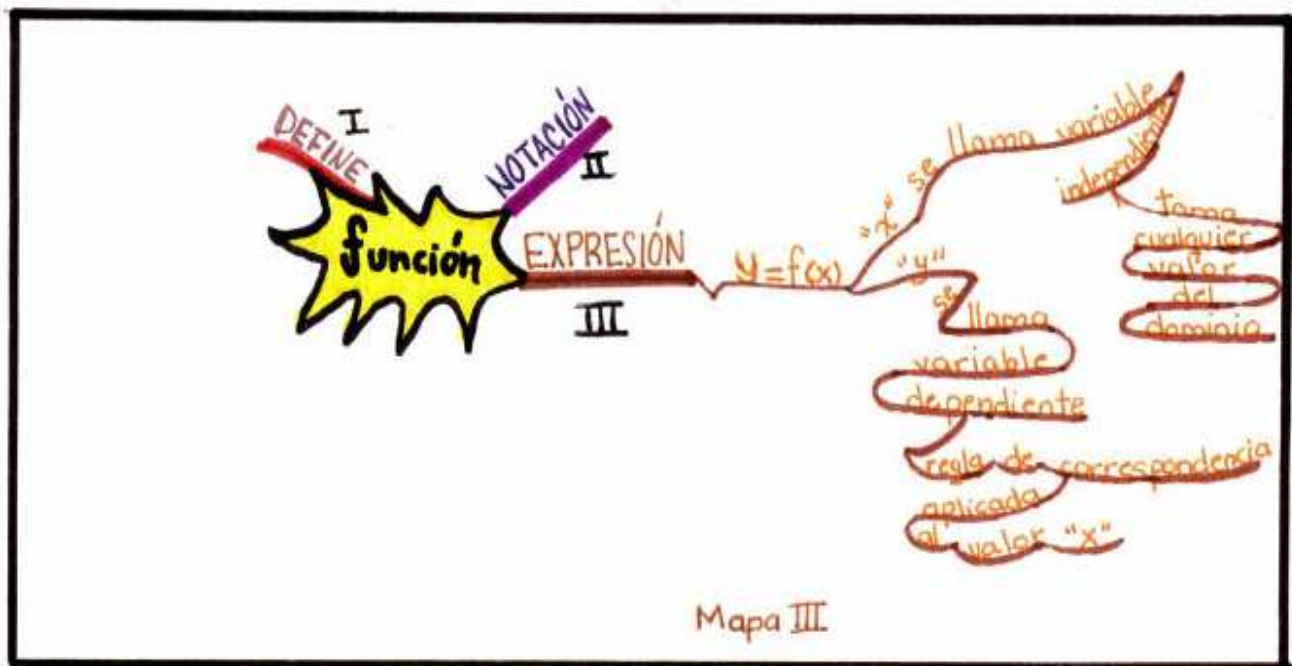 DEFINE
I
NOTACIÓN
II
función
EXPRESIÓN
III
y = f(x)
"x" se llama variable
independiente
toma
cualquier
valor
del
dominio
"y"
se llama
variable
dependiente
regla de correspondencia
aplicada
al valor "x"
Mapa III